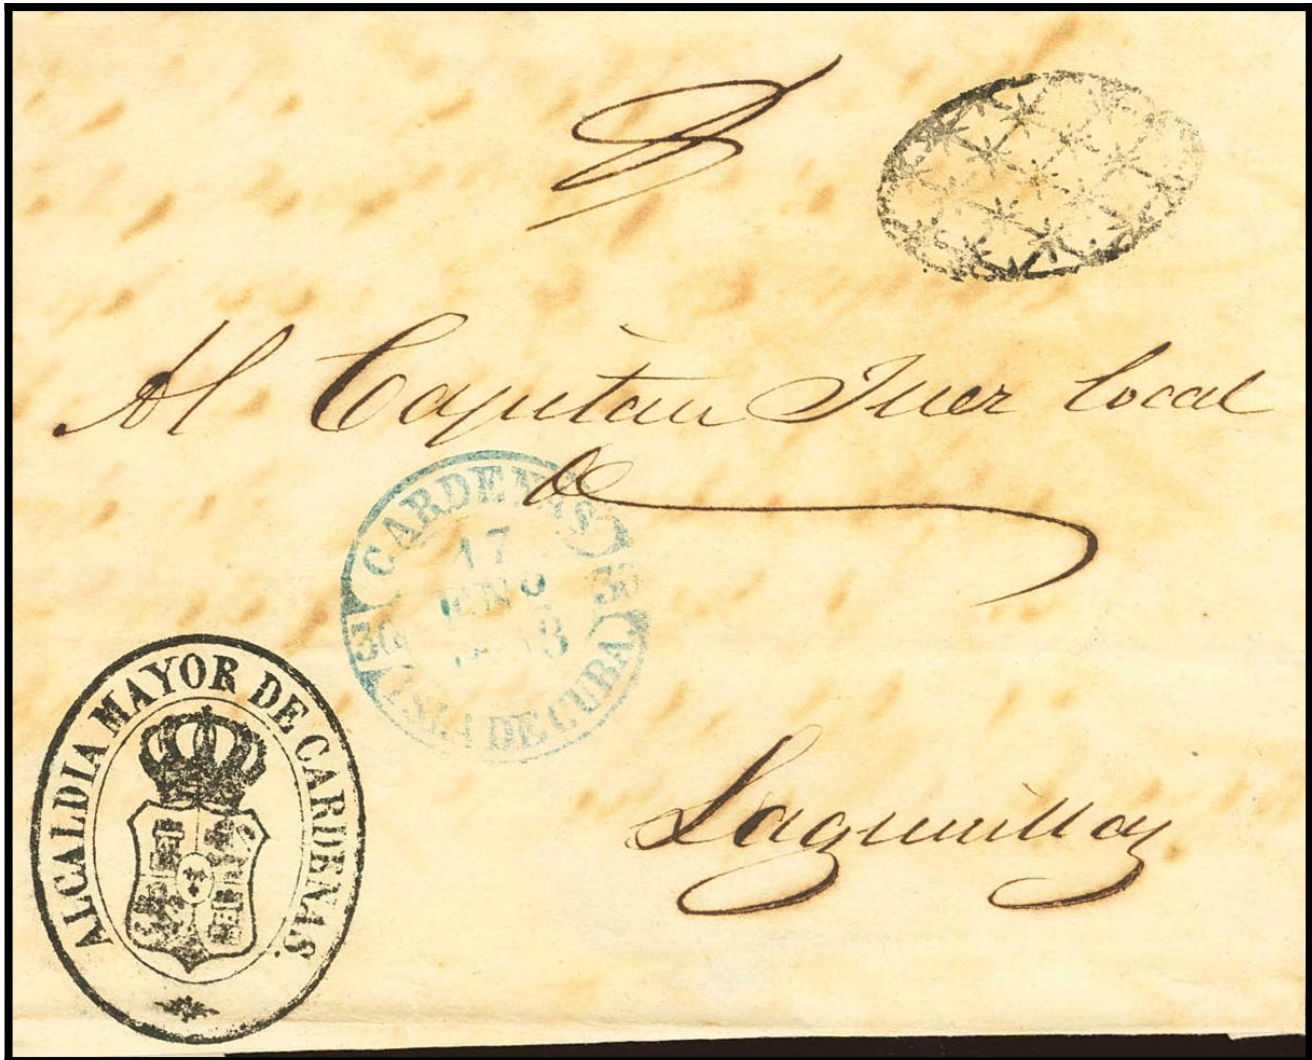 Al Capitan Juez local
de
CARDENAS
17
ENO
ISLA DE CUBA
Lagunillas
ALCALDIA MAYOR DE CARDENAS.